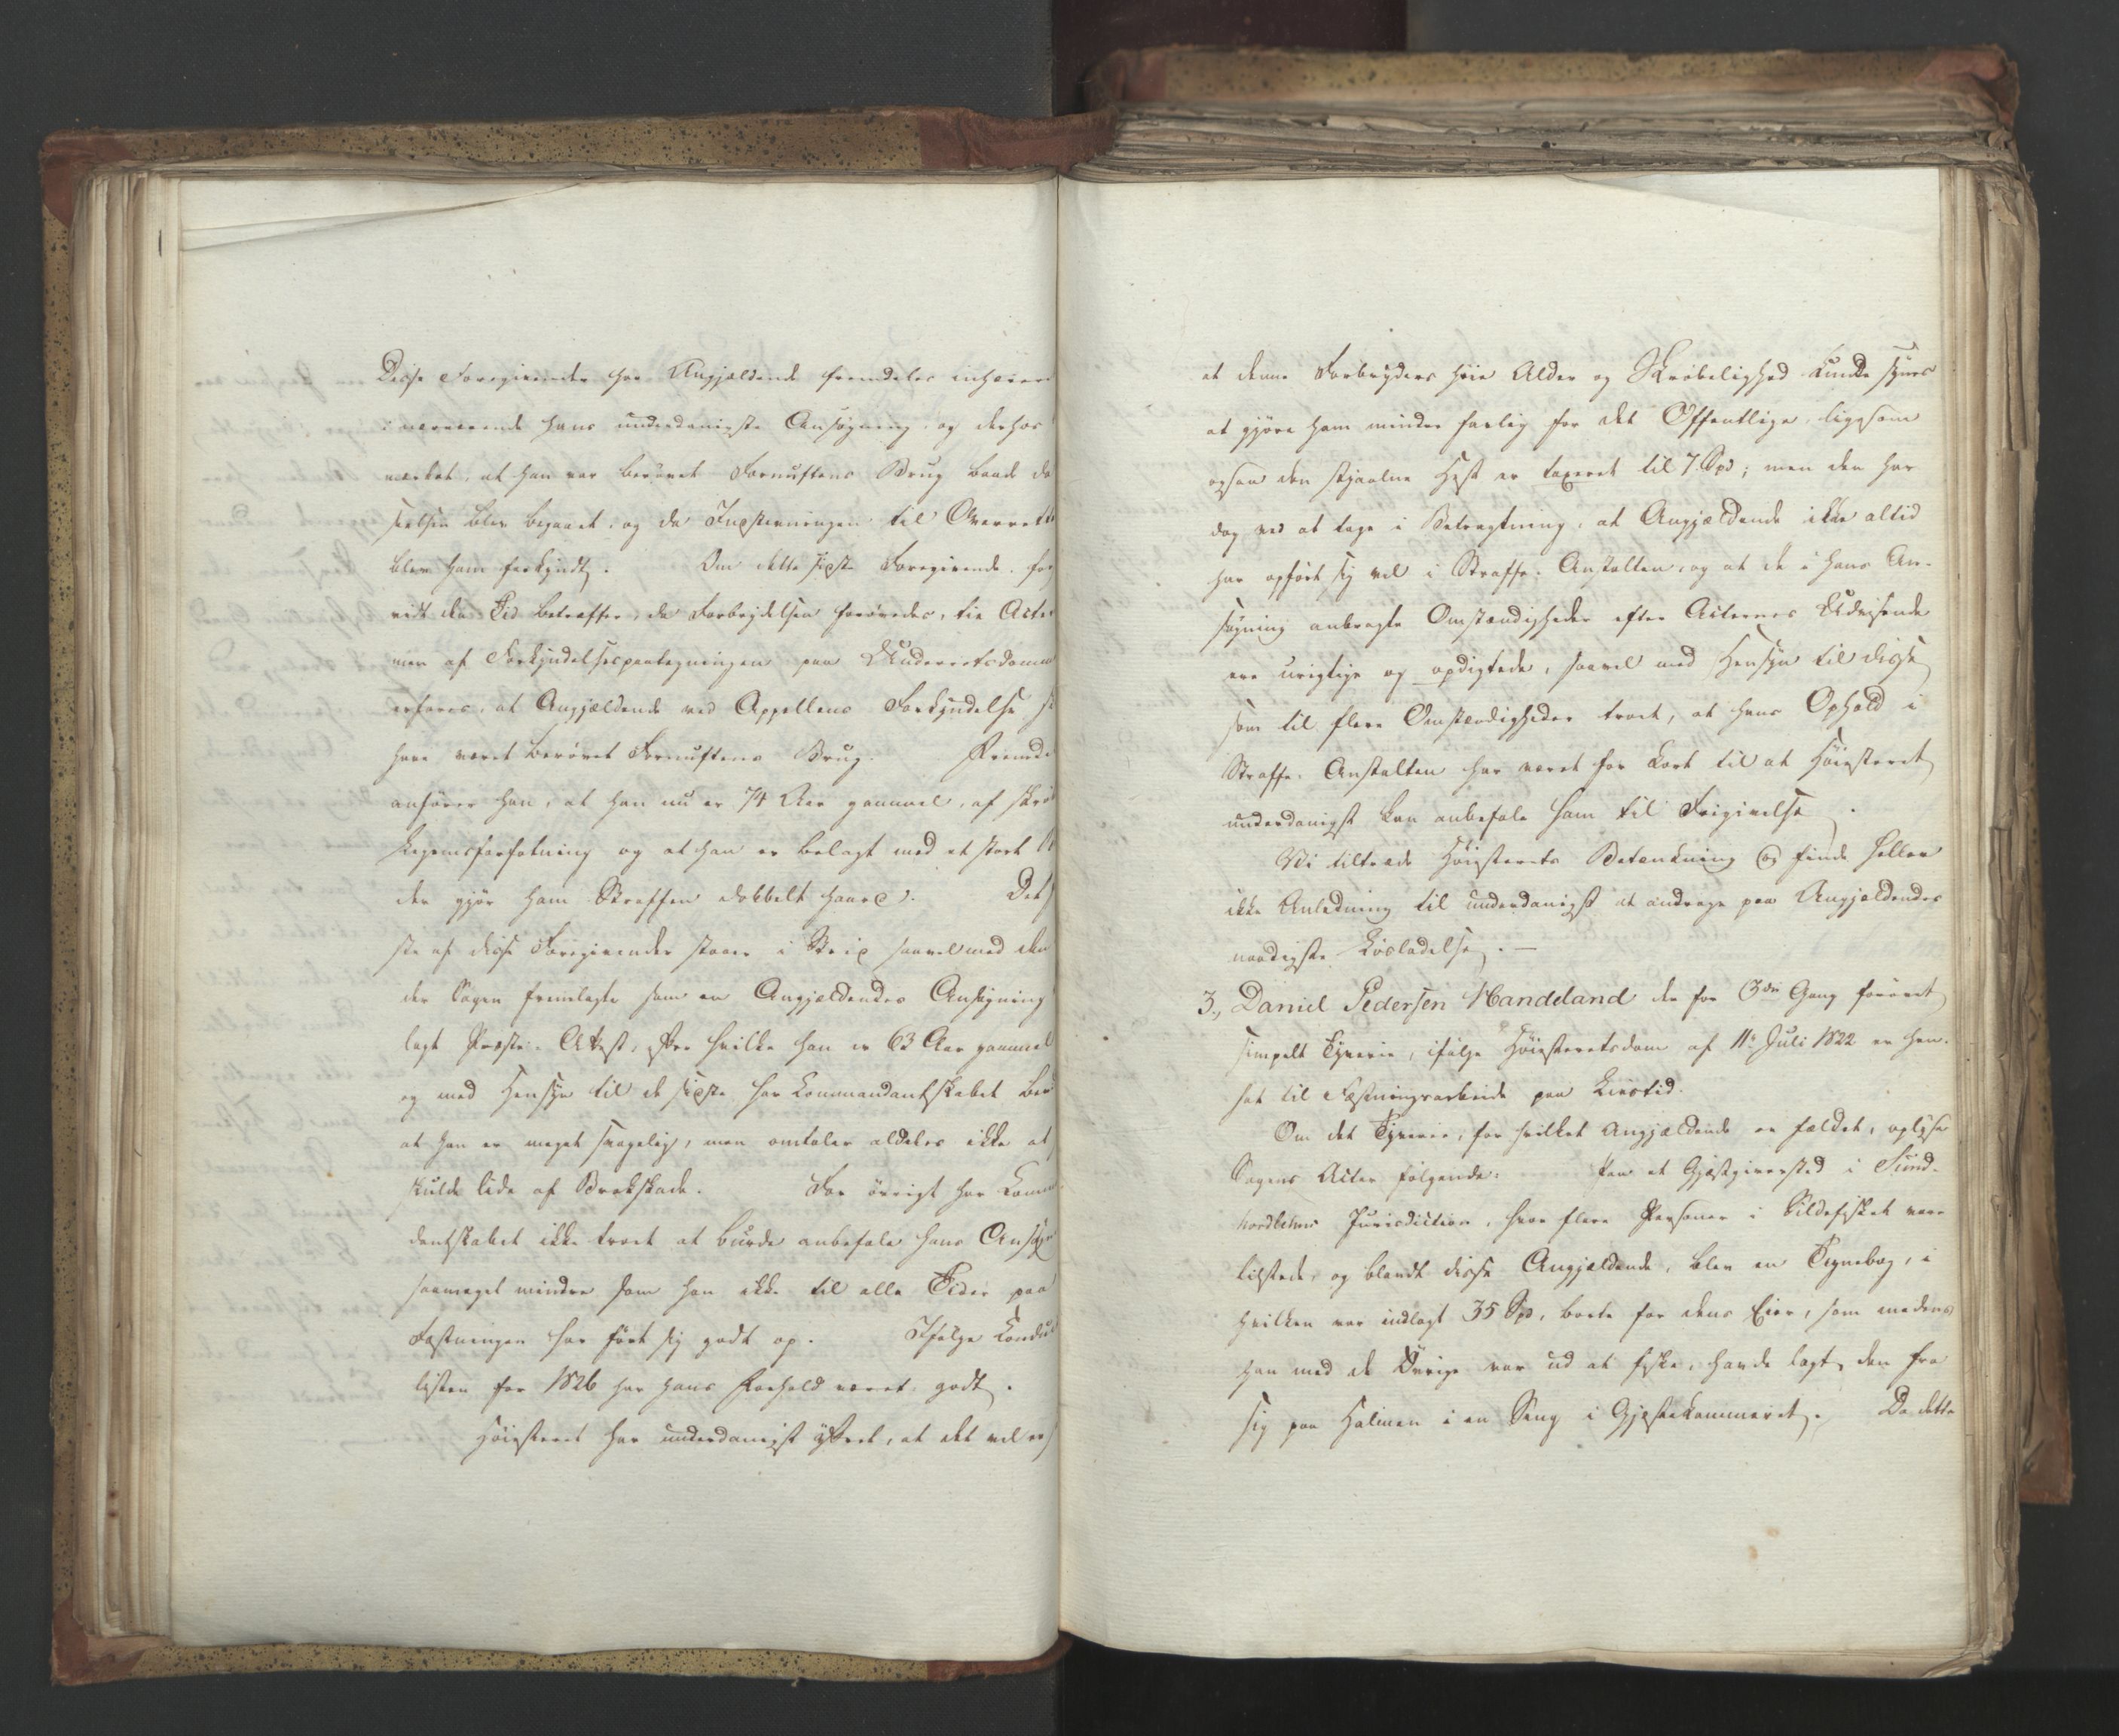 Disse Foregivender har Angjældende fremdeles inhærere
i nærværende hans underdanigste Ansøgning, og derhos
mærket, at han var berøvet Fornuftens Brug baade da
seelsen blev begaaet, og da Indstevningen til Overrett
blev ham forkyndt. Om dette sidste Foregivende, for
vidt den Tid betræffer, da Forbrydelsen forøvedes, tie Acter
men af Forkyndelsespaategningen paa Underretsdomm
erfares, at Angjældende ved Appellens Forkyndelse s
have været berøvet Fornuftens Brug. Fremde
anfører han, at han nu er 74 Aar gammel, af skrøb
Legemsforfatning og at han er belagt med et stort
der gjør ham Straffen dobbelt haard. Det f
ste af disse Foregivender staaer i Strid saavel med den
der Sagen fremlagte som en Angjældendes Ansøgning
lagt Præste-Attest, efter hvilke han er 63 Aar gammel
og med Hensyn til det sidste har Kommandantskabet ber
at han er meget svagelig, men omtaler aldeles ikke at
skulde lide af Brokskade. For øvrigt har Komm
dantskabet ikke troet at burde anbefale hans Ansøgn
saameget mindre som han ikke til alle Tider paa
Fæstningen har ført sig godt op. Ifølge Condui
listen for 1826 har hans Forhold været godt.
Høiesteret har underdanigst yttret, at det vel er
at denne Forbryders høie Alder og Skrøbelighed kunde synes
at gjøre ham mindre farlig for det Offentlige, ligesom
ogsaa den stjaalne Hest er taxeret til 7 Spd; men den har
dog ved at tage i Betragtning, at Angjældende ikke altid
har opført sig vel i Straffe-Anstalten, og at de i hans An-
søgning anbragte Omstændigheder efter Acternes Udvisende
ere urigtige og opdigtede, saavel med Hensyn til disse
som til flere Omstændigheder troet, at hans Ophold i
Straffe-Anstalten har været for kort til at Høiesteret
underdanigst kan anbefale ham til Frigivelse.
Vi tiltræde Høiesterets Betænkning og finde heller
ikke Anledning til underdanigst at andrage paa Angjældendes
naadigste Løsladelse. —
3., Daniel Pedersen Handeland der for 3die Gang forøvet
simpelt Tyverie, ifølge Høiesteretsdom af 11te Juli 1822 er hen-
sat til Fæstningsarbeide paa Livstid.
Om det Tyverie, for hvilket Angjældende er fældet, oplyse
Sagens Acter følgende: Paa et Gjæstgiversted i Sund-
hordlehns Jurisdiction, hvor flere Personer i Sildefisket vare
tilstede, og blandt disse Angjældende, blev en Tegnebog, i
hvilken var indlagt 35 Spd, borte for dens Eier, som medens
han med de Øvrige var ud at fiske, havde lagt den fra
sig paa Halmen i en Seng i Gjæstekammeret. Da dette